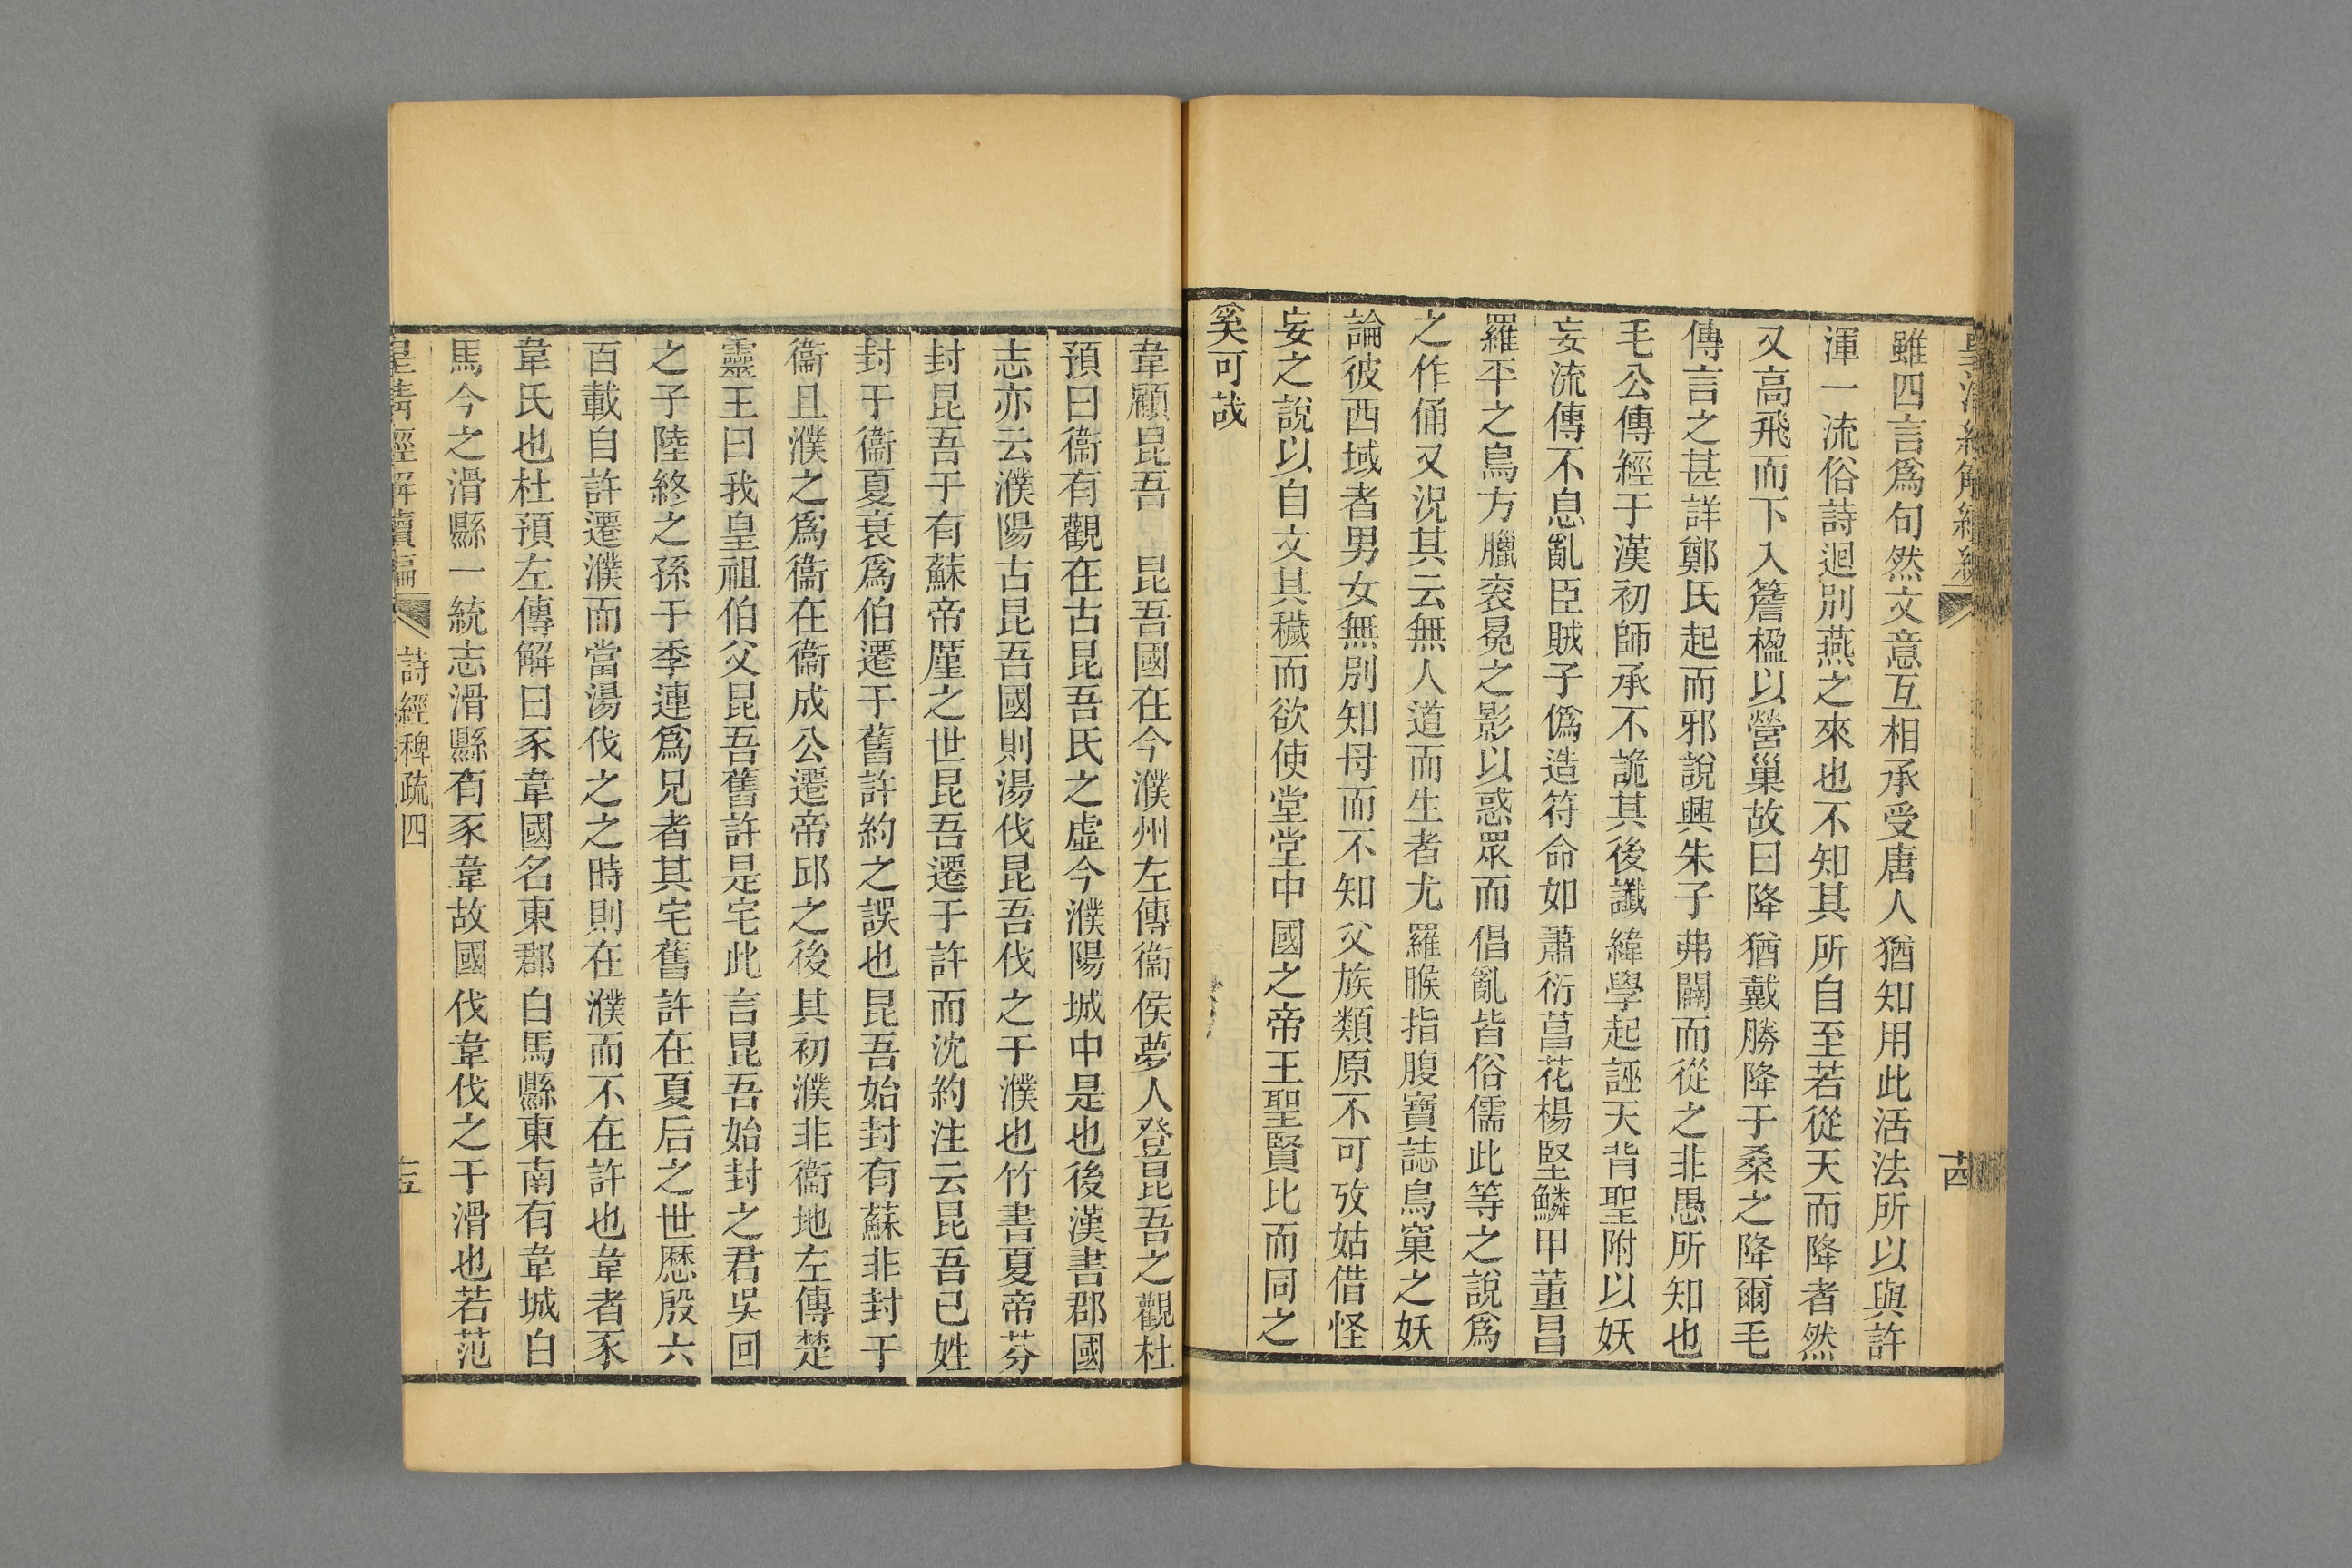 雖四言爲句然文意互相承受唐人猶知用此活法所以與許
渾一流俗詩迥別燕之來也不知其所自至若從天而降者然
又高飛而下入簷楹以營巢故曰降猶戴勝降于桑之降爾毛
傳言之甚詳鄭氏起而邪說興朱子弗闢而從之非愚所知也
毛公傳經于漢初師承不詭其後讖緯學起誣天背聖附以妖
妄流傳不息亂臣賊子僞造符命如蕭衍菖花楊堅鱗甲董昌
羅平之鳥方臘衮冕之影以惑眾而倡亂皆俗儒此等之說爲
之作俑又況其云無人道而生者尤羅睺指腹寶誌鳥窠之妖
論彼西域者男女無別知母而不知父族類原不可攷姑借怪
妄之說以自文其穢而欲使堂堂中國之帝王聖賢比而同之
奚可哉
韋顧昆吾 昆吾國在今濮州左傳衞侯夢人登昆吾之觀杜
預曰衞有觀在古昆吾氏之虛今濮陽城中是也後漢書郡國
志亦云濮陽古昆吾國則湯伐昆吾伐之于濮也竹書夏帝芬
封昆吾于有蘇帝厪之世昆吾遷于許而沈約注云昆吾已姓
封于衞夏衰爲伯遷于舊許約之誤也昆吾始封有蘇非封于
衞且濮之爲衞在衞成公遷帝邱之後其初濮非衞地左傳楚
靈王曰我皇祖伯父昆吾舊許是宅此言昆吾始封之君吳回
之子陸終之孫于季連爲兄者其宅舊許在夏后之世歷殷六
百載自許遷濮而當湯伐之之時則在濮而不在許也韋者豕
韋氏也杜預左傳解曰豕韋國名東郡白馬縣東南有韋城白
馬今之滑縣一統志滑縣有豕韋故國伐韋伐之于滑也若范
皇清經解續編 詩經稗疏四